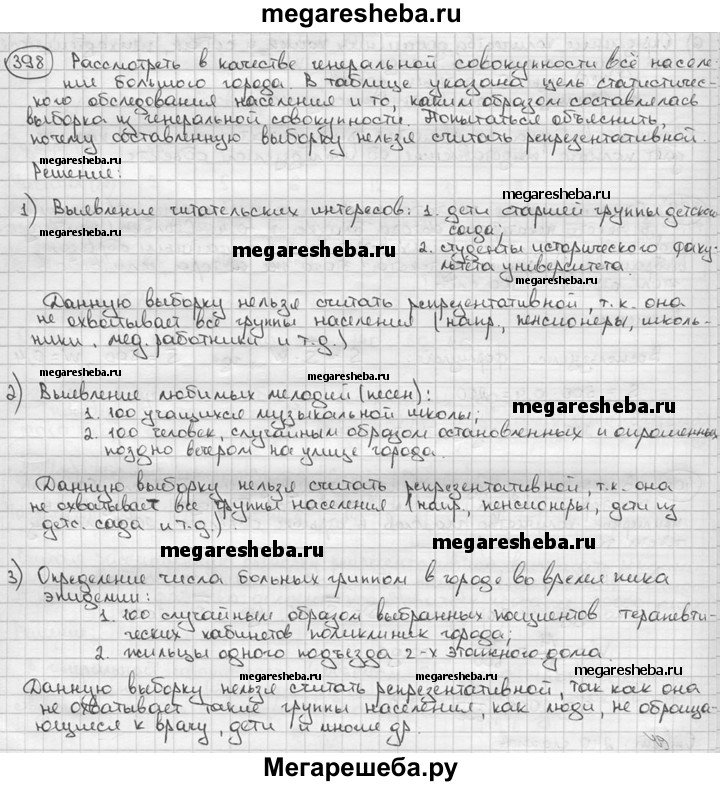 megaresheba.ru
398 Рассмотреть в качестве генеральной совокупности всё населе-
ние большого города. В таблице указана цель статистичес-
кого обследования населения и то, каким образом составлялась
выборка из генеральной совокупности. Попытаться объяснить,
почему составленную выборку нельзя считать репрезентативной.
megaresheba.ru megaresheba.ru
Решение:
megaresheba.ru
1) Выявление читательских интересов: 1. дети старшей группы детского
сада;
megaresheba.ru
2. студенты исторического факу-
льтета университета.
megaresheba.ru
Данную выборку нельзя считать репрезентативной, т.к. она
не охватывает все группы населения (напр., пенсионеры, школь-
ники, мед. работники и т.д.)
2) Выявление любимых мелодий (песен):
megaresheba.ru
1. 100 учащихся музыкальной школы;
2. 100 человек, случайным образом остановленных и опрошенных
поздно вечером на улице города.
Данную выборку нельзя считать репрезентативной, т.к. она
не охватывает все группы населения (напр., пенсионеры, дети из
детс. сада и т.д.)
megaresheba.ru megaresheba.ru
3) Определение числа больных гриппом в городе во время пика
эпидемии:
1. 100 случайным образом выбранных пациентов терапевти-
ческих кабинетов поликлиник города;
2. жильцы одного подъезда 2-х этажного дома.
megaresheba.ru megaresheba.ru megaresheba.ru
Данную выборку нельзя считать репрезентативной, так как она
не охватывает такие группы населения, как люди, не обраща-
ющиеся к врачу, дети и многие др.
Мегарешеба.ру